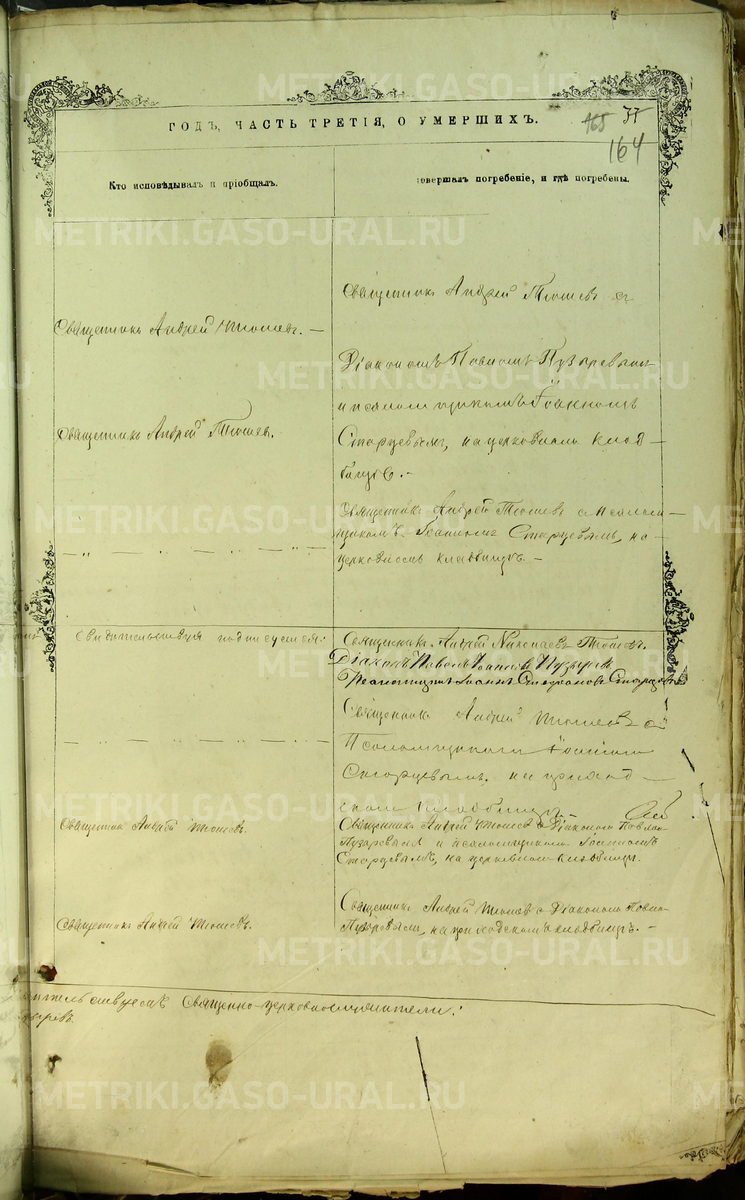 ГОДЪ, ЧАСТЬ ТРЕТІЯ, О УМЕРШИХЪ.
165 77
164
Кто исповѣдывалъ и пріобщалъ.
совершалъ погребеніе, и гдѣ погребены.
Священникъ Андрей Тюшевъ с
Священникъ Андрей Тюшевъ. —
Діакономъ Павломъ Пузыревымъ
и псаломщикомъ Іоанномъ
Священникъ Андрей Тюшев.
Старцевымъ, на церковномъ клад-
бищѣ. -
Священникъ Андрей Тюшевъ с псалом-
щикомъ Іоанномъ Старцевымъ, на
церковномъ кладбищѣ. —
— „ — — „ — „ —
Свидѣтельствуя подписуемся:
Священникъ Андрей Николаевъ Тюшевъ.
Діаконъ Павелъ Пузырев
Псаломщикъ Іоаннъ Стефановъ Старцевъ
Священникъ Андрей Тюшевъ с
Псаломщикомъ Іоанномъ
— „ — — „ — „ —
Старцевымъ, на приход-
скомъ кладбищѣ. —
Священник Андрей Тюшевъ.
Священникъ Андрей Тюшев с Діакономъ Павлом
Пузыревымъ и псаломщикомъ Іоанномъ
Старцевымъ, на церковном кладбищѣ.
Священникъ Андрей Тюшев с Діакономъ Павло-
Священникъ Андрей Тюшевъ.
Пузыревым, на приходскомъ кладбищѣ. —
Священно-церковнослужители:
METRIKI.GASO-URAL.RU